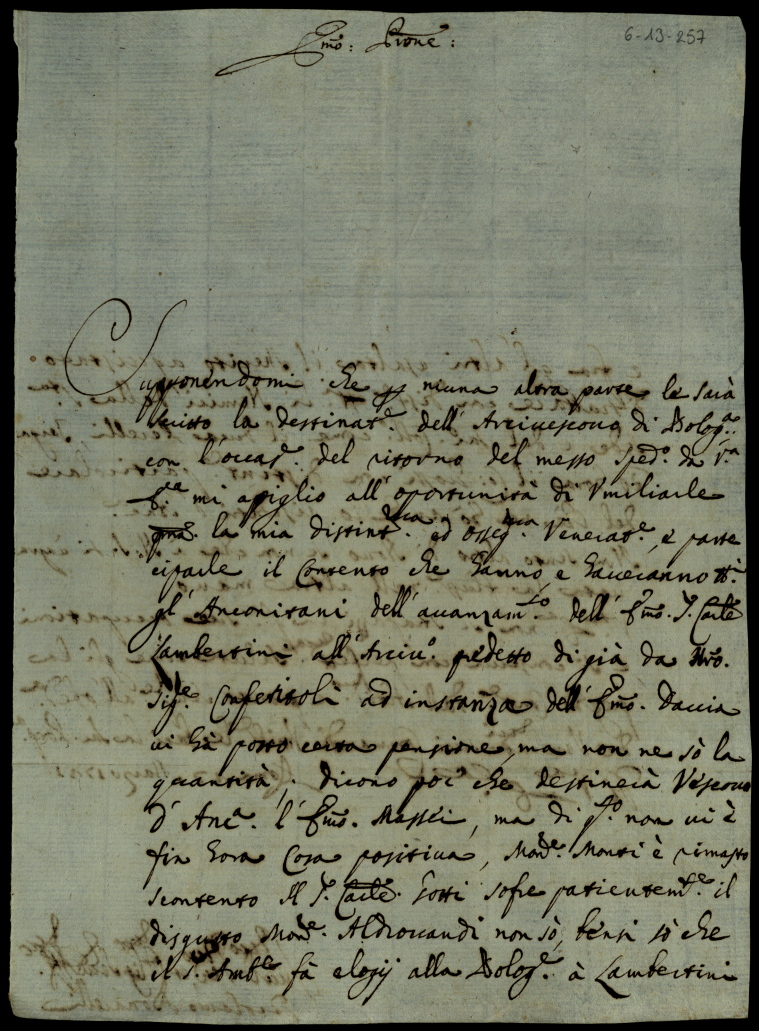 6-13-257
Emo: Prone:
Supponendomi che p niuna altra parte le sarà
scritto la destinat.e dell' Arcivescovo di Bolog.a
con l'occas.e del ritorno del messo sped.o da V.a
E.za mi apiglio all'oportunità di Vmiliarle
la mia distint.ma ed osseq.ma Venerat.e, e parte
ciparle il Contento che hanno, e haveranno
gl' Anconitani dell'avanzam.to dell' Emo. S. Carle
Lambertini all' Arciv.o pñdetto di già da Nro.
Sig.e Conferitoli ad instanza dell' Emo. Daccia
vi hà posto certa pensione, ma non ne sò la
quantità; dicono poi che destinerà Vescovo
D' Anc.a l' Emo. Massei, ma di q.to non vi è
fin hora Cosa positiva, Mons.e Monti è rimasto
scontento Il S. Carle. Gotti sofre patientem.te il
disgusto Mons.e Aldrovandi non sò, bensi sò che
il S. Amb.e fà elogij alla Bolog.e à Lambertini